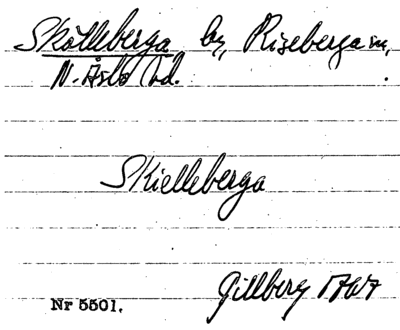 Skölleberga by, Riseberga sn,
N. Åsbo hd.
Skielleberga
Gillberg 1767
Nr 5501.